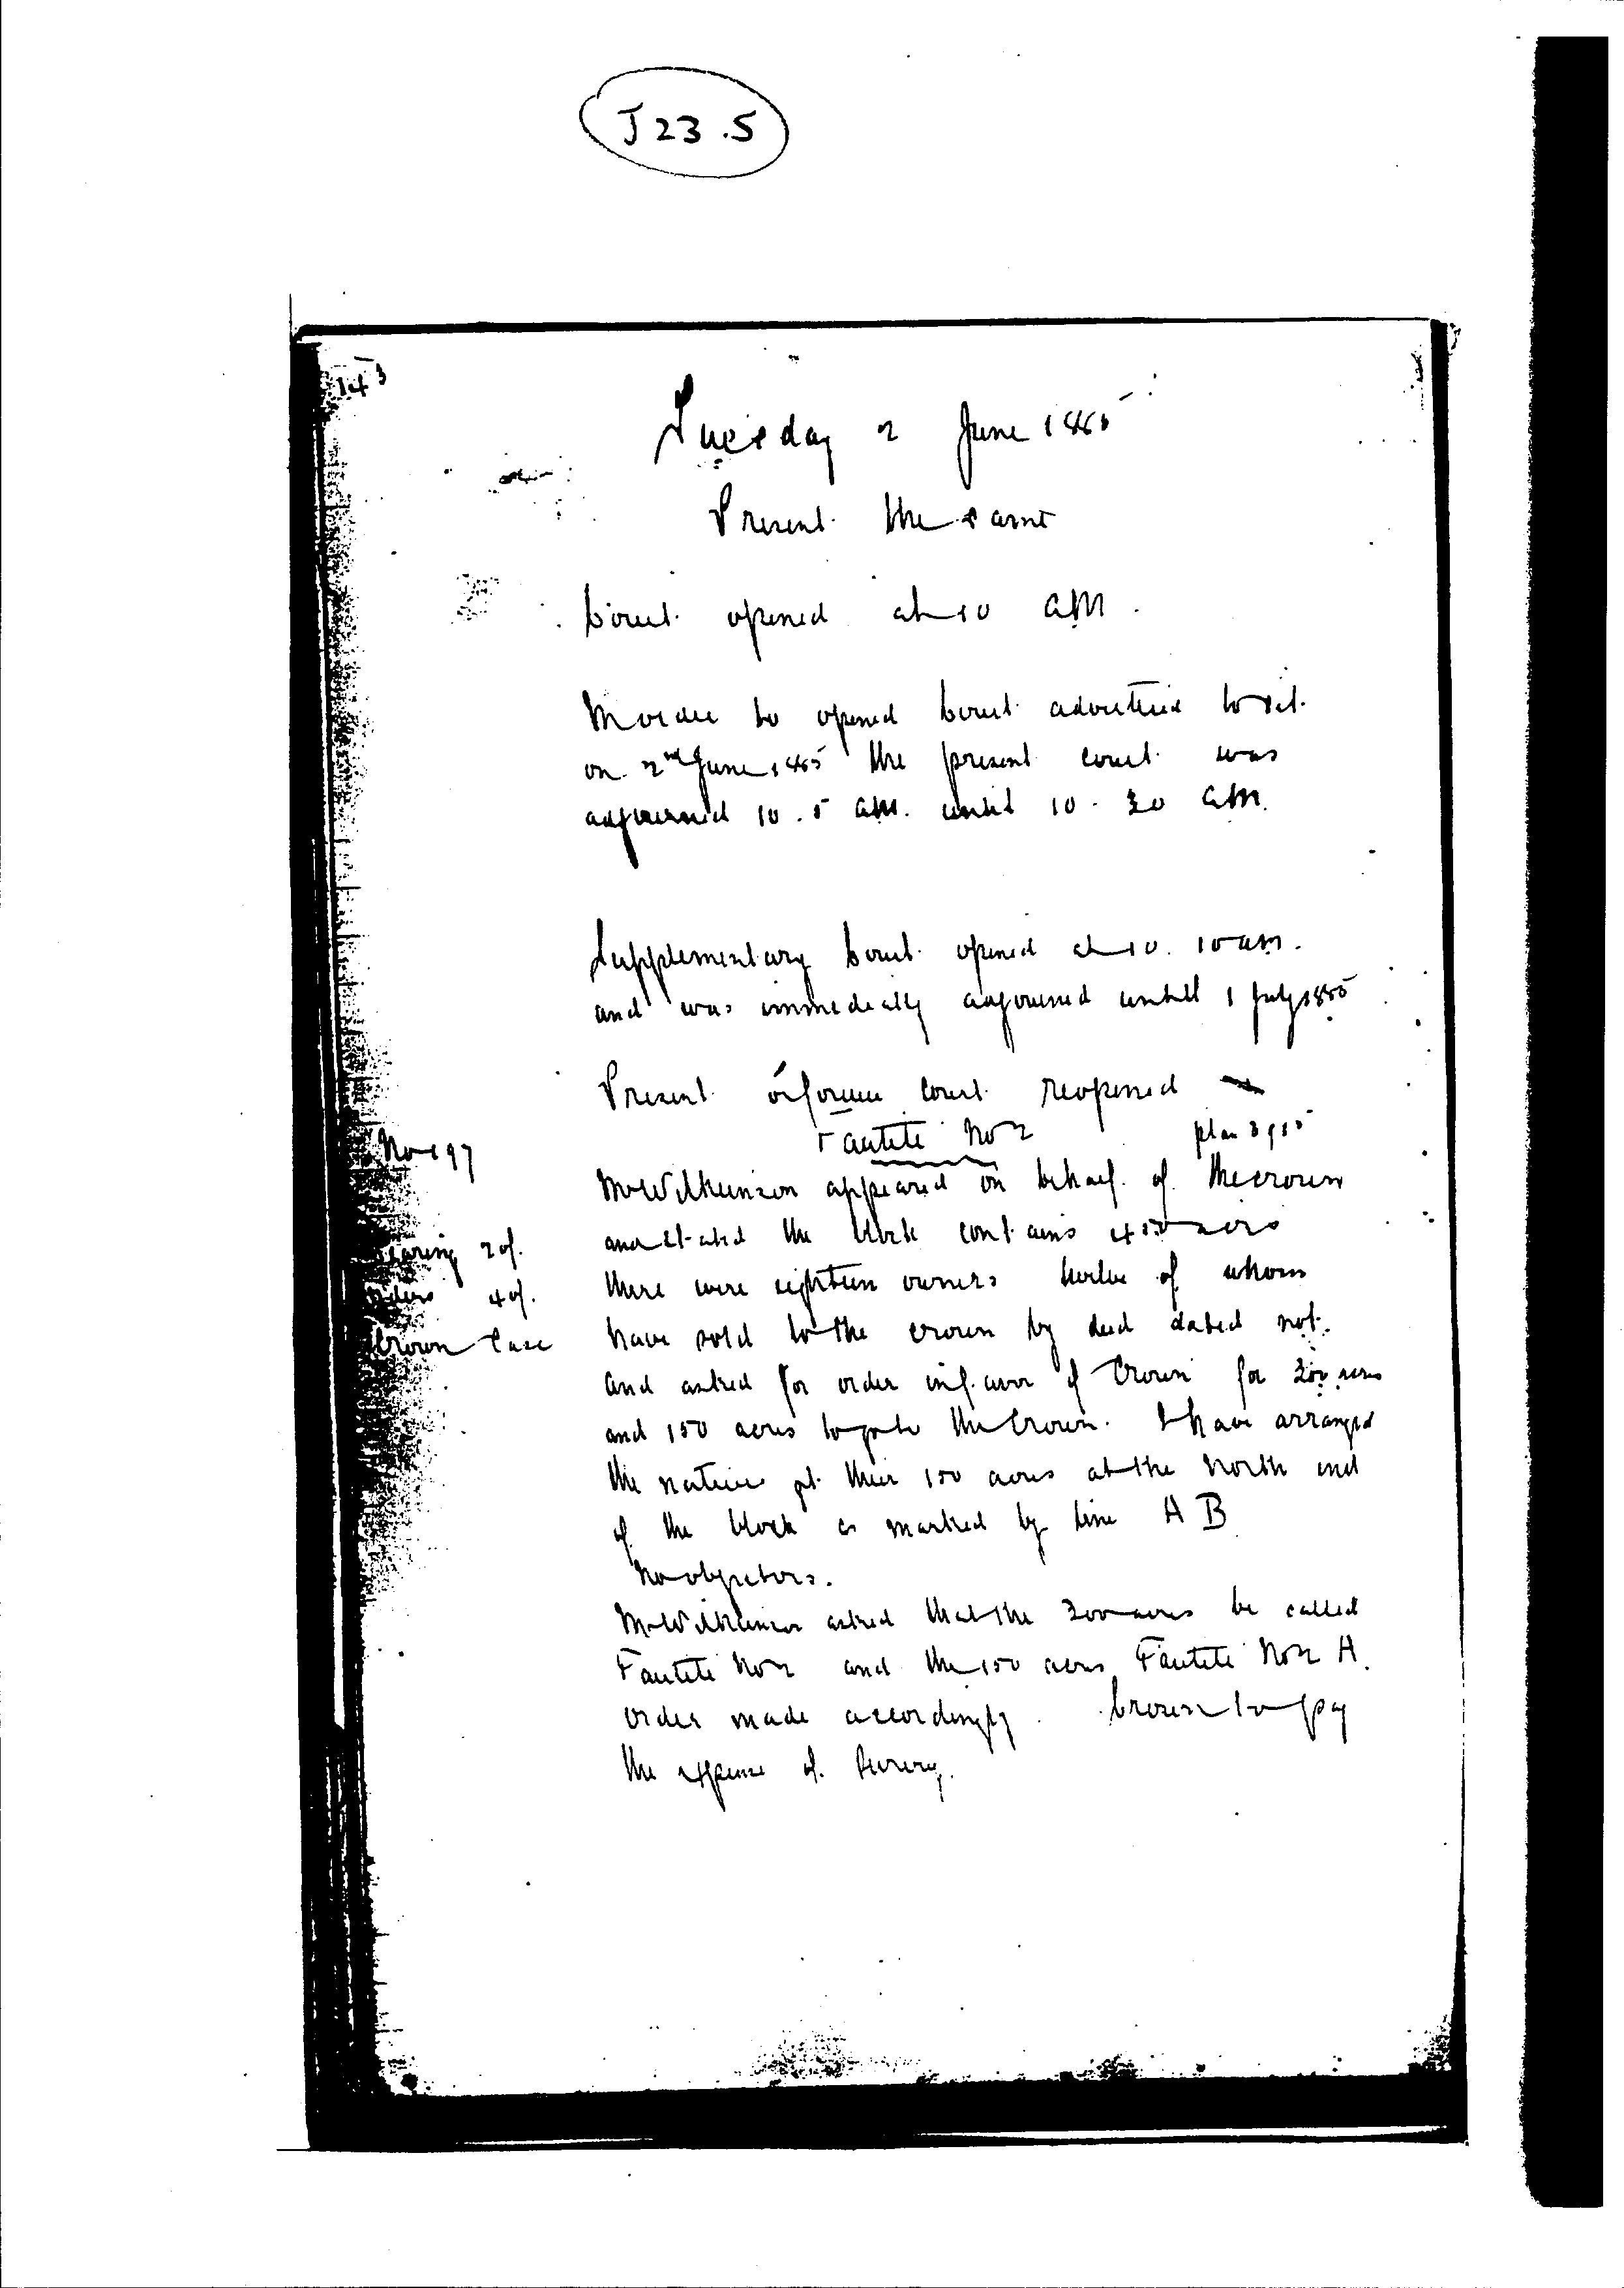 J 23 .5
143
Tuesday 2 June 1885
Present the same
Court opened at 10 AM.
In order to opened Court advertised to sit
on 2nd June 1885 the present court was
adjourned 10.5 AM. until 10.30 AM.
Supplementary Court opened at 10.10 am.
and was immedeatly adjourned untill 1 July 1885
Present court reopened
Tautiti No 2
No 197
Mr Wilkinson appeared on behalf of the crown
and stated the block contains 450 acres
Hearing 20/.
there were eighteen owners twelve of whom
Orders 40/.
have sold to the crown by deed dated not.
Crown Case
and asked for order in favor of Crown for 300 acres
and 150 acres to the Crown. I have arranged
the natives get their 150 acres at the North end
of the block as marked by line A B
No objectors.
Mr Wilkinson asked that the 300 acres be called
Tautiti No 2 and the 150 acres Tautiti No 2 A.
Order made accordingly. Crown to pay
the expense of Survey.